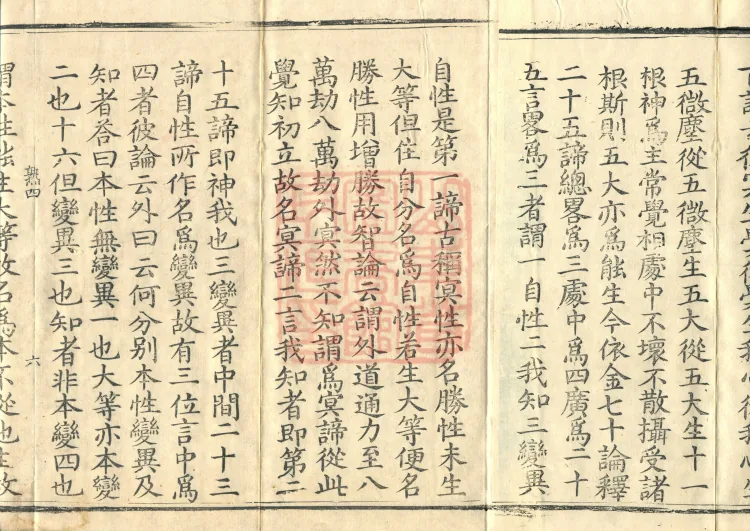 五微塵從五微塵生五大從五大生十一
根神爲主常覺相處中不壞不散攝受諸
根斯則五大亦爲能生今依金七十論釋
二十五諦總畧爲三處中爲四廣爲二十
五言畧爲三者謂一自性二我知三變異
自性是第一諦古稱冥性亦名勝性未生
大等但住自分名爲自性若生大等便名
勝性用增勝故智論云謂外道通力至八
萬劫八萬劫外冥然不知謂爲冥諦從此
覺知初立故名冥諦二言我知者即第二
十五諦即神我也三變異者中間二十三
諦自性所作名爲變異故有三位言中爲
四者彼論云外曰云何分别本性變異及
知者荅曰本性無變異一也大等亦本變
二也十六但變異三也知者非本變四也
熟四
六
謂本性能生大等故名爲本不從他生故